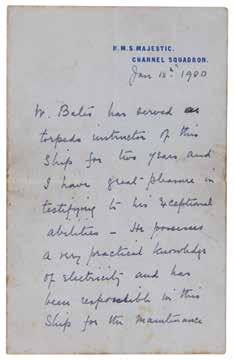 H.M.S. MAJESTIC.
CHANNEL SQUADRON.
Jan 1900
W. Bates has served as
torpedo instructor of this
Ship for two years and
I have great pleasure in
testifying to his exceptional
abilities – He possesses
a very practical knowledge
of electricity and has
been responsible in this
Ship for the maintenance